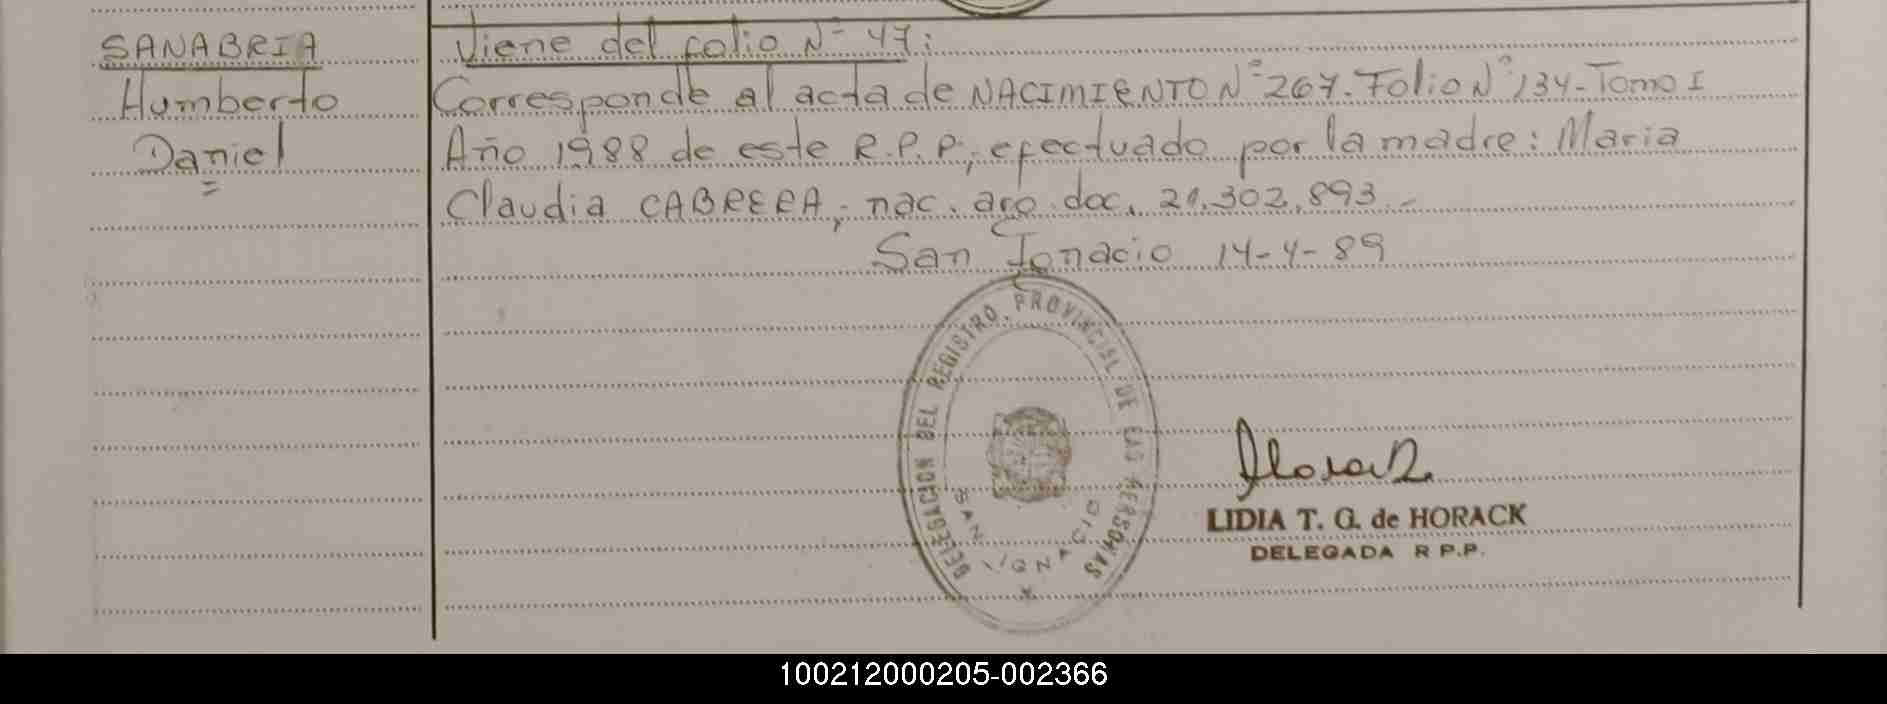 SANABRIA
Humberto
Daniel
Viene del folio Nº 47:
Corresponde al acta de NACIMIENTO Nº 267. Folio Nº 134 - Tomo I
Año 1988 de este R.P.P., efectuado por la madre: Maria
Claudia CABRERA, nac. arg. doc. 21.302.893.-
San Ignacio 14-4-89
DELEGACION DEL REGISTRO PROVINCIAL DE LAS PERSONAS
SAN IGNACIO
LIDIA T. G. de HORACK
DELEGADA R P.P.
100212000205-002366